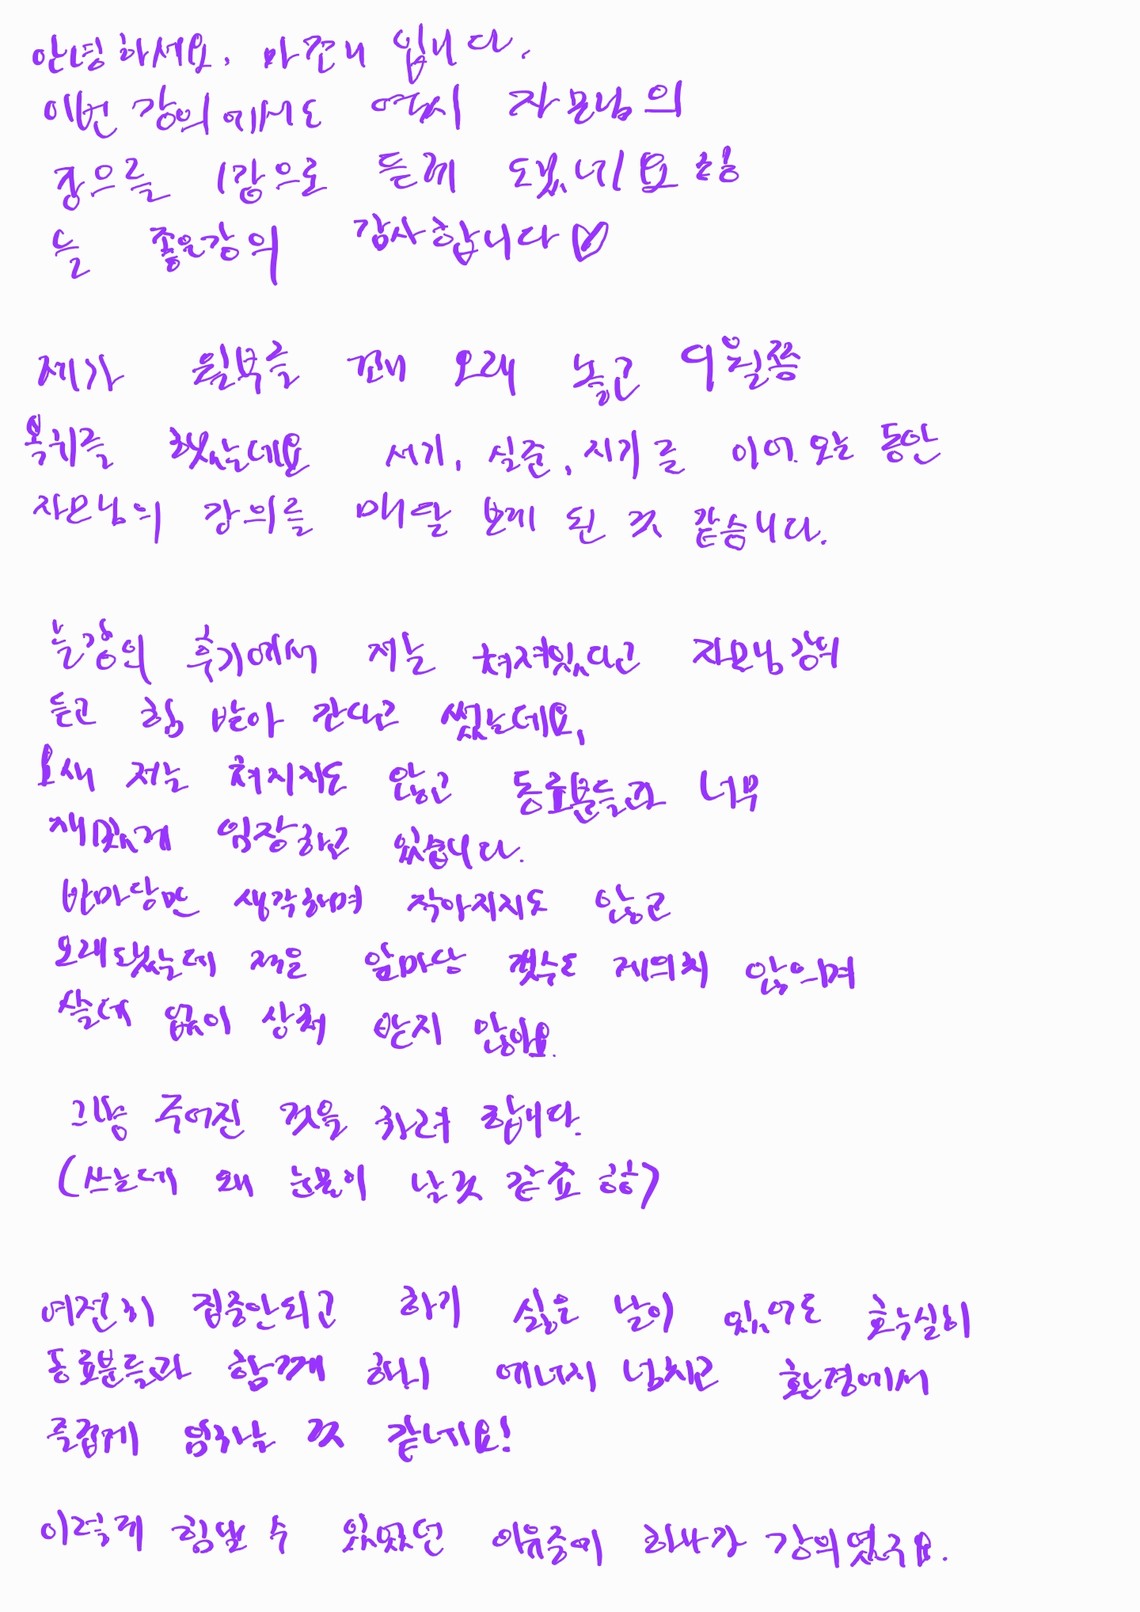 안녕하세요. 마꼬니 입니다.
이번 강의에서도 역시 자모님의
강으를 1강으로 듣게 됐네요 힝
늘 좋은강의 감사합니다♡
제가 월복를 꽤 오래 놓고 9월쯤
복귀를 했는데요 서기, 실준, 지기를 이어오는 동안
자모님의 강의를 매달 보게 된 것 같습니다.
늘강의 후기에서 저는 쳐져있다고 자모님강의
듣고 힘 받아 간다고 썼는데요,
요새 저는 쳐지지도 않고 동료분들과 너무
재밌게 임장하고 있습니다.
반마당만 생각하며 작아지지도 않고
오래됐는데 적은 앞마당 갯수도 개의치 않으며
쓸데 없이 상처 받지 않아요.
그냥 주어진 것을 하려 합니다.
(쓰는데 왜 눈물이 날것 같죠 항)
여전히 집중안되고 하기 싫은 날이 있어도 확실히
동료분들과 함께 하니 에너지 넘치고 환경에서
즐겁게 임하날 것 같네요!
이렇게 힘낼 수 있었던 이유중에 하나가 강의였구요.